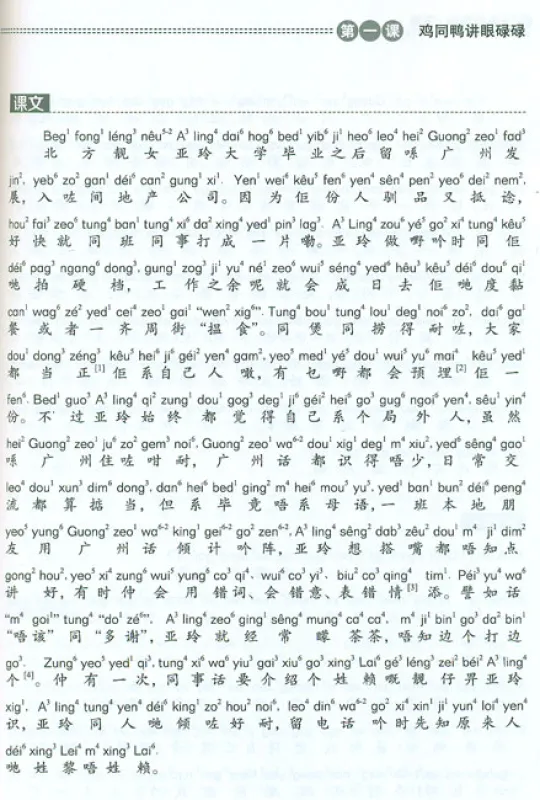 第一课 鸡同鸭讲眼碌碌
课文
Beg¹ fong¹ léng³ nêu⁵⁻² A³ ling⁴ dai⁶ hog⁶ bed¹ yib⁶ ji¹ heo⁶ leo⁴ hei² Guong² zeo¹ fad³
北方靓女亚玲大学毕业之后留喺广州发
jin², yeb⁶ zo² gan¹ déi⁶ can² gung¹ xi¹. Yen¹ wei⁶ kêu⁵ fen⁶ yen⁴ sên⁴ pen² yeo⁶ dei² nem²,
展，入咗间地产公司。因为佢份人驯品又抵谂，
hou² fai³ zeo⁶ tung⁴ ban¹ tung⁴ xi⁶ da² xing⁴ yed¹ pin³ lag³. A³ Ling⁴ zou⁶ yé⁵ go² xi⁴ tung⁴ kêu⁵
好快就同班同事打成一片嘞。亚玲做嘢吟时同佢
déi⁶ pag³ ngang⁶ dong³, gung¹ zog³ ji¹ yu⁴ né¹ zeo⁶ wui⁵ séng⁴ yed⁶ hêu³ kêu⁵ déi⁶ dou⁶ qi¹
哋拍硬档，工作之余呢就会成日去佢哋度黐
can¹ wag⁶ zé² yed¹ cei⁴ zeo¹ gai¹ “wen² xig⁶”. Tung⁴ bou¹ tung⁴ lou¹ deg¹ noi⁶ zo², dai⁶ ga¹
餐或者一齐周街“揾食”。同煲同捞得耐咗，大家
dou¹ dong³ zéng³ kêu⁵ hei⁶ ji⁶ géi² yen⁴ gam², yeo⁵ med¹ yé⁵ dou¹ wui⁵ yu⁶ mai⁴ kêu⁵ yed¹
都当正[1]佢系自己人噉，有乜嘢都会预埋[2]佢一
fen⁶. Bed¹ guo³ A³ ling⁴ qi² zung¹ dou¹ gog³ deg¹ ji⁶ géi² hei⁶ go³ gug⁶ ngoi⁶ yen⁴, sêu¹ yin⁴
份。不过亚玲始终都觉得自己系个局外人，虽然
hei² Guong² zeo¹ ju⁶ zo² gem³ noi⁶, Guong² zeo¹ wa⁶⁻² dou¹ xig¹ deg¹ m⁴ xiu², yed⁶ sêng⁴ gao¹
喺广州住咗咁耐，广州话都识得唔少，日常交
leo⁴ dou¹ xun³ dim⁶ dong³, dan⁶ hei⁶ bed¹ ging² m⁴ hei⁶ mou⁵ yu⁵, yed¹ ban¹ bun² déi⁶ peng⁴
流都算掂当，但系毕竟唔系母语，一班本地朋
yeo⁵ yung⁶ Guong² zeo¹ wa⁶⁻² king¹ gei⁶⁻² go² zen⁶⁻², A³ ling⁴ sêng² dab³ zêu² dou¹ m⁴ ji¹ dim²
友用广州话倾计吟阵，亚玲想搭嘴都唔知点
gong² hou², yeo⁵ xi⁴ zung⁶ wui⁵ yung⁶ co³ qi⁴, wui⁶ co³ yi³, biu² co³ qing⁴ tim¹. Péi³ yu⁴ wa⁶
讲好，有时仲会用错词、会错意、表错情[3]添。譬如话
“m⁴ goi¹” tung⁴ “do¹ zé⁶”, A³ ling⁴ zeo⁶ ging¹ sêng⁴ mung⁴ ca⁴ ca⁴, m⁴ ji¹ bin¹ go³ da² bin¹
“唔该”同“多谢”，亚玲就经常矇茶茶，唔知边个打边
go³. Zung⁶ yeo⁵ yed¹ qi³, tung⁴ xi⁶ wa⁶ yiu³ gai³ xiu⁶ go³ xing³ Lai⁶ gé³ léng³ zei² béi² A³ ling⁴
个[4]。仲有一次，同事话要介绍个姓赖嘅靓仔畀亚玲
xig¹. A³ ling⁴ tung⁴ yen⁴ déi⁶ king¹ zo² hou² noi⁶, leo⁴ din⁶ wa⁶⁻² go² xi⁴ xin¹ ji¹ yun⁴ loi⁴ yen⁴
识，亚玲同人哋倾咗好耐，留电话吟时先知原来人
déi⁶ xing³ Lei⁴ m⁴ xing³ Lai⁶.
哋姓黎唔姓赖。